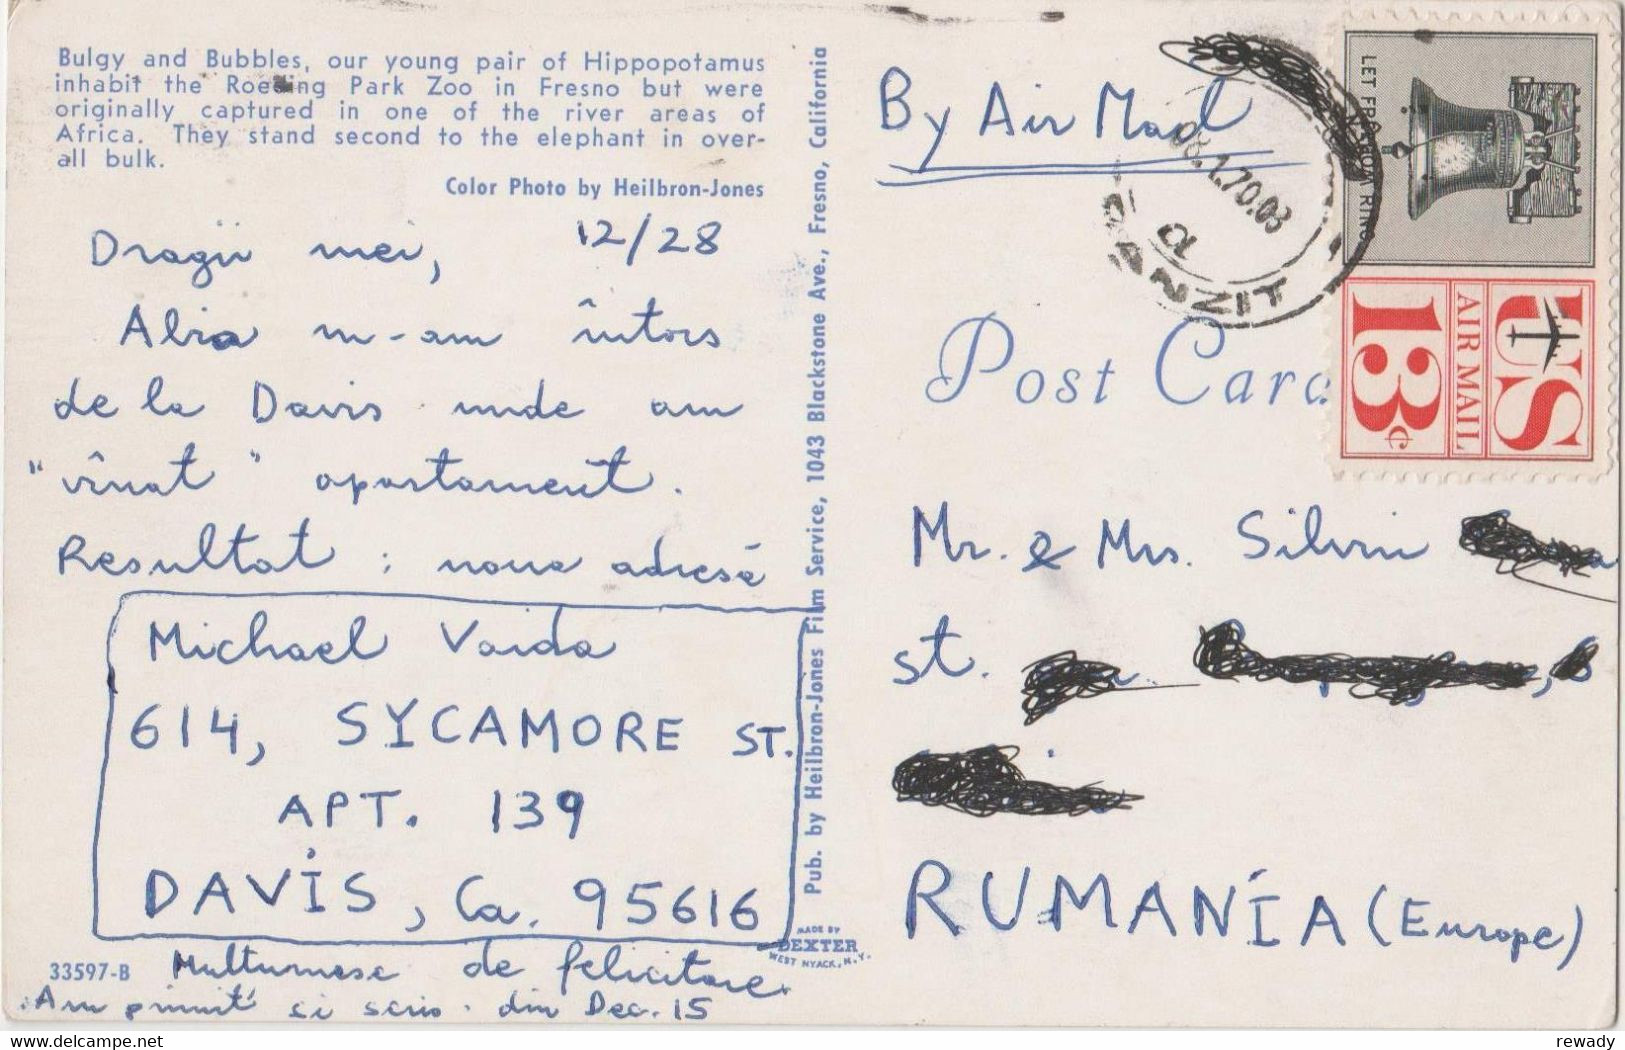 Bulgy and Bubbles, our young pair of Hippopotamus
inhabit the Roeding Park Zoo in Fresno but were
originally captured in one of the river areas of
Africa. They stand second to the elephant in over-
all bulk.
Color Photo by Heilbron-Jones
12/28
Dragii mei,
Abia m-am întors
de la Davis unde am
"vînat" apartament.
Resultat : noua adresă
Michael Vaida
614, SYCAMORE ST.
APT. 139
DAVIS, Ca. 95616
33597-B
Multumesc de felicitare.
Am primit si scris. din Dec. 15
Pub. by Heilbron-Jones Film Service, 1043 Blackstone Ave., Fresno, California
MADE BY
DEXTER
WEST NYACK, N.Y.
By Air Mail
08.1.70.03
TRANZIT
LET FREEDOM RING
US
AIR MAIL
13c
Post Card
Mr. & Mrs. Silviu
st.
RUMANIA (Europe)
delcampe.net
rewady